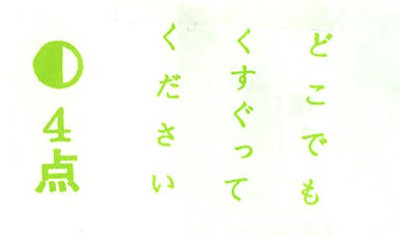 どこでも
くすぐって
ください
4点